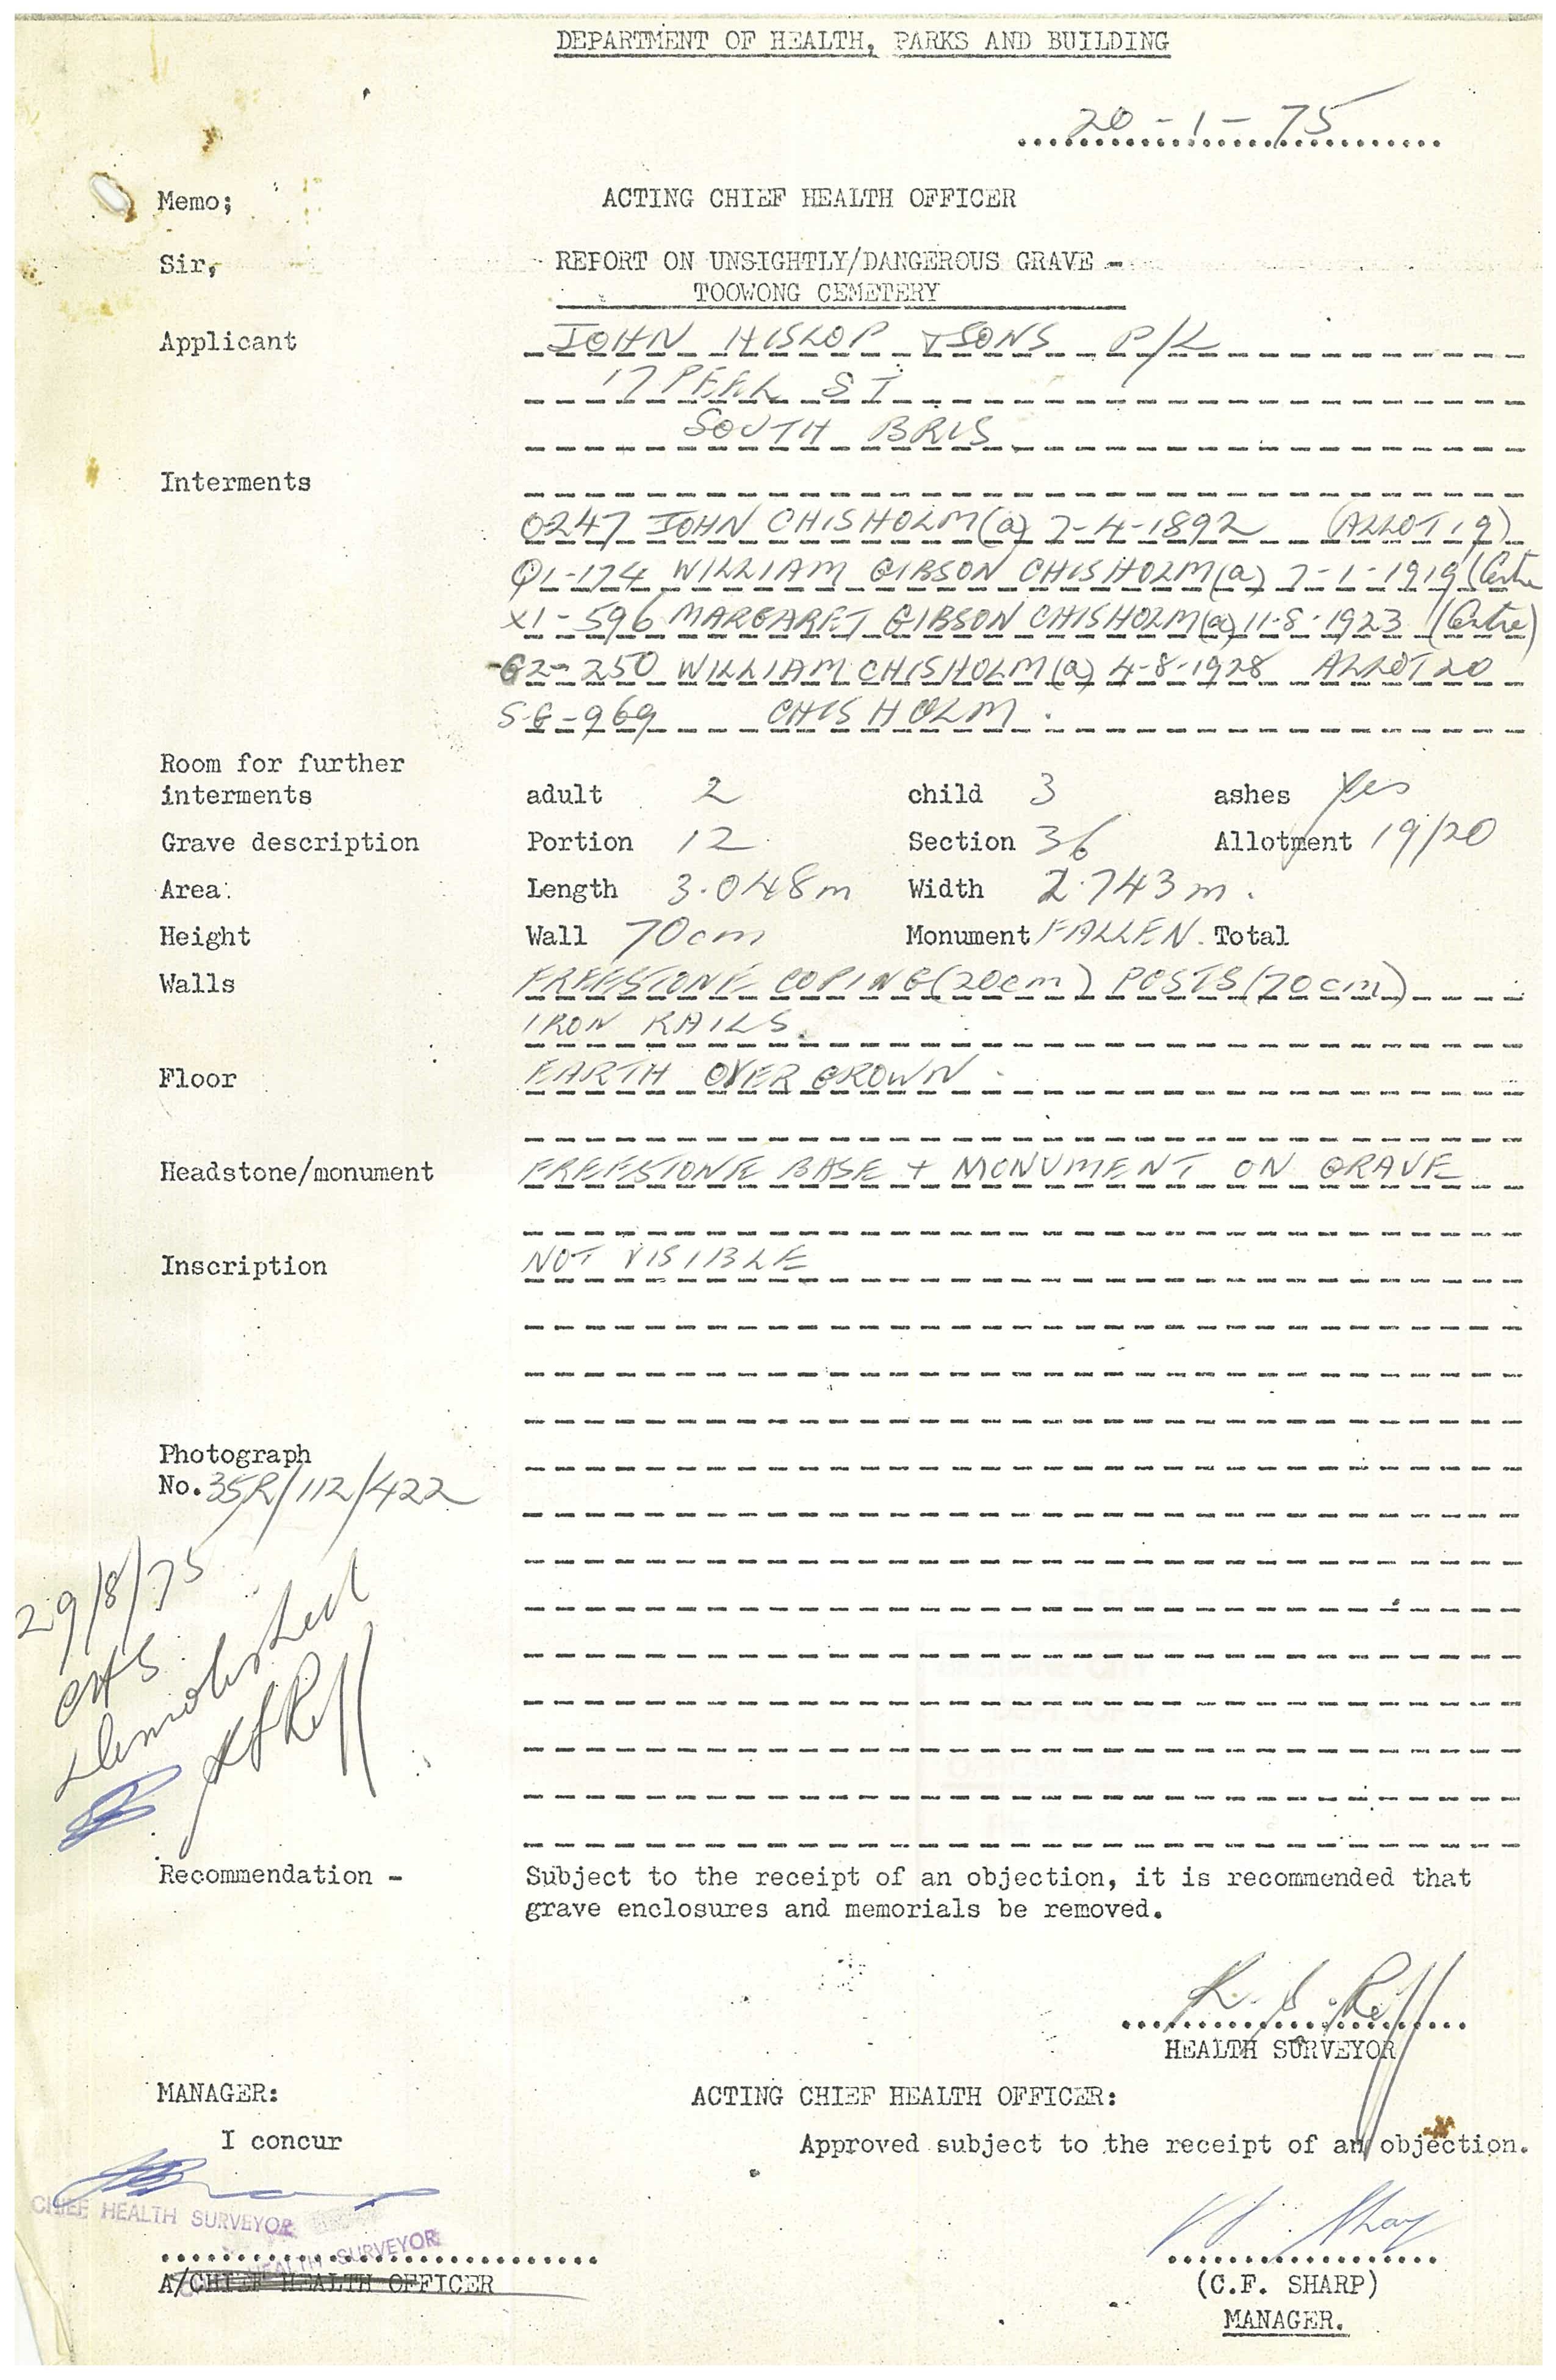 DEPARTMENT OF HEALTH, PARKS AND BUILDING
20-1-75
Memo; ACTING CHIEF HEALTH OFFICER
Sir, REPORT ON UNSIGHTLY/DANGEROUS GRAVE -
TOOWONG CEMETERY
Applicant JOHN HISLOP & SONS P/L
17 PEEL ST
SOUTH BRIS
Interments
0247 JOHN CHISHOLM (a) 7-4-1892 (ALLOT 19)
Q1-174 WILLIAM GIBSON CHISHOLM (a) 7-1-1919 (Centre
X1-596 MARGARET GIBSON CHISHOLM (a) 11-8-1923 (Centre)
G2-250 WILLIAM CHISHOLM (a) 4-8-1928 ALLOT 20
S.G-969 CHISHOLM.
Room for further
interments adult 2 child 3 ashes Yes
Grave description Portion 12 Section 36 Allotment 19/20
Area: Length 3.048m Width 2.743m.
Height Wall 70cm Monument FALLEN. Total
Walls FREESTONE COPING (20cm) POSTS (70cm)
IRON RAILS.
Floor EARTH OVERGROWN.
Headstone/monument FREESTONE BASE + MONUMENT ON GRAVE
Inscription NOT VISIBLE
Photograph
No. 35R/112/422
29/8/75
CHS
Demolished
Recommendation - Subject to the receipt of an objection, it is recommended that
grave enclosures and memorials be removed.
HEALTH SURVEYOR
MANAGER: ACTING CHIEF HEALTH OFFICER:
I concur Approved subject to the receipt of an objection.
CHIEF HEALTH SURVEYOR
HEALTH SURVEYOR
A/CHIEF HEALTH OFFICER
(C.F. SHARP)
MANAGER.